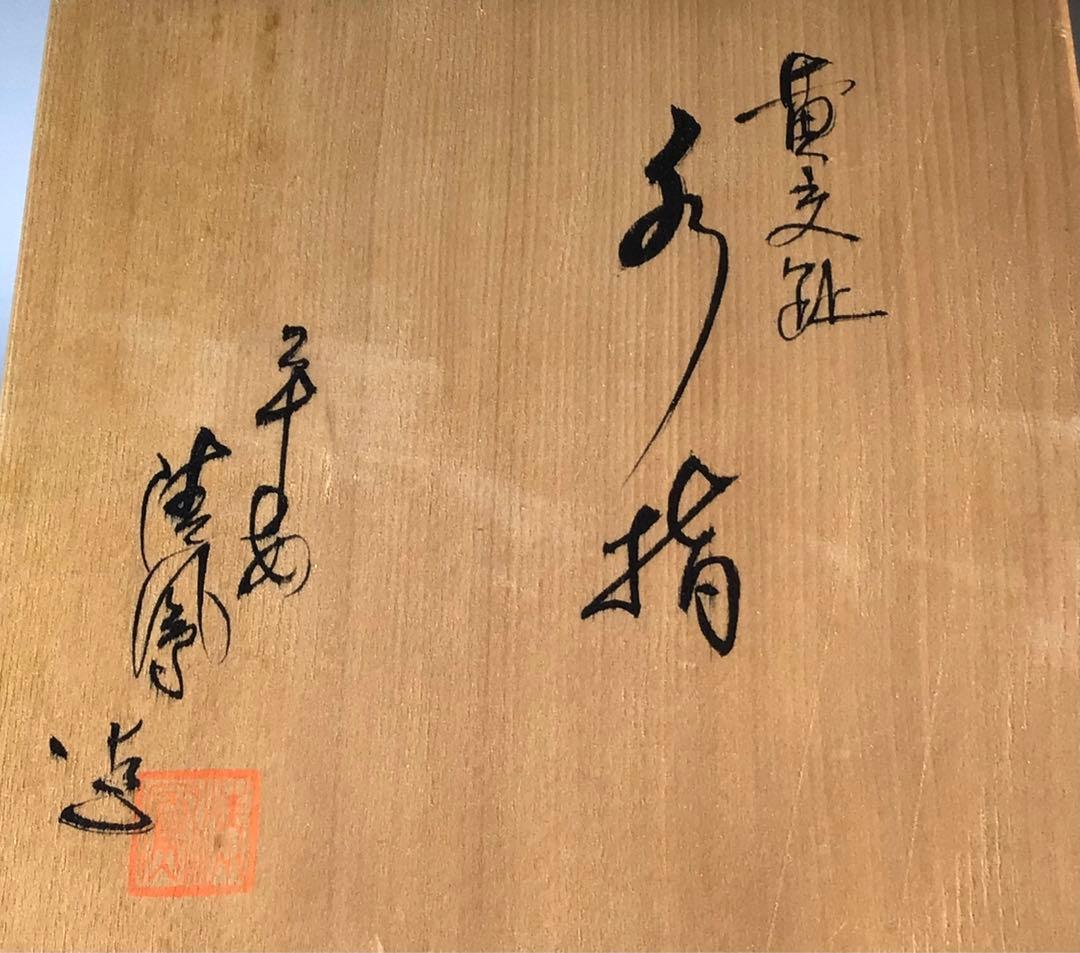 黄交趾
水指
平安
清鳳
造